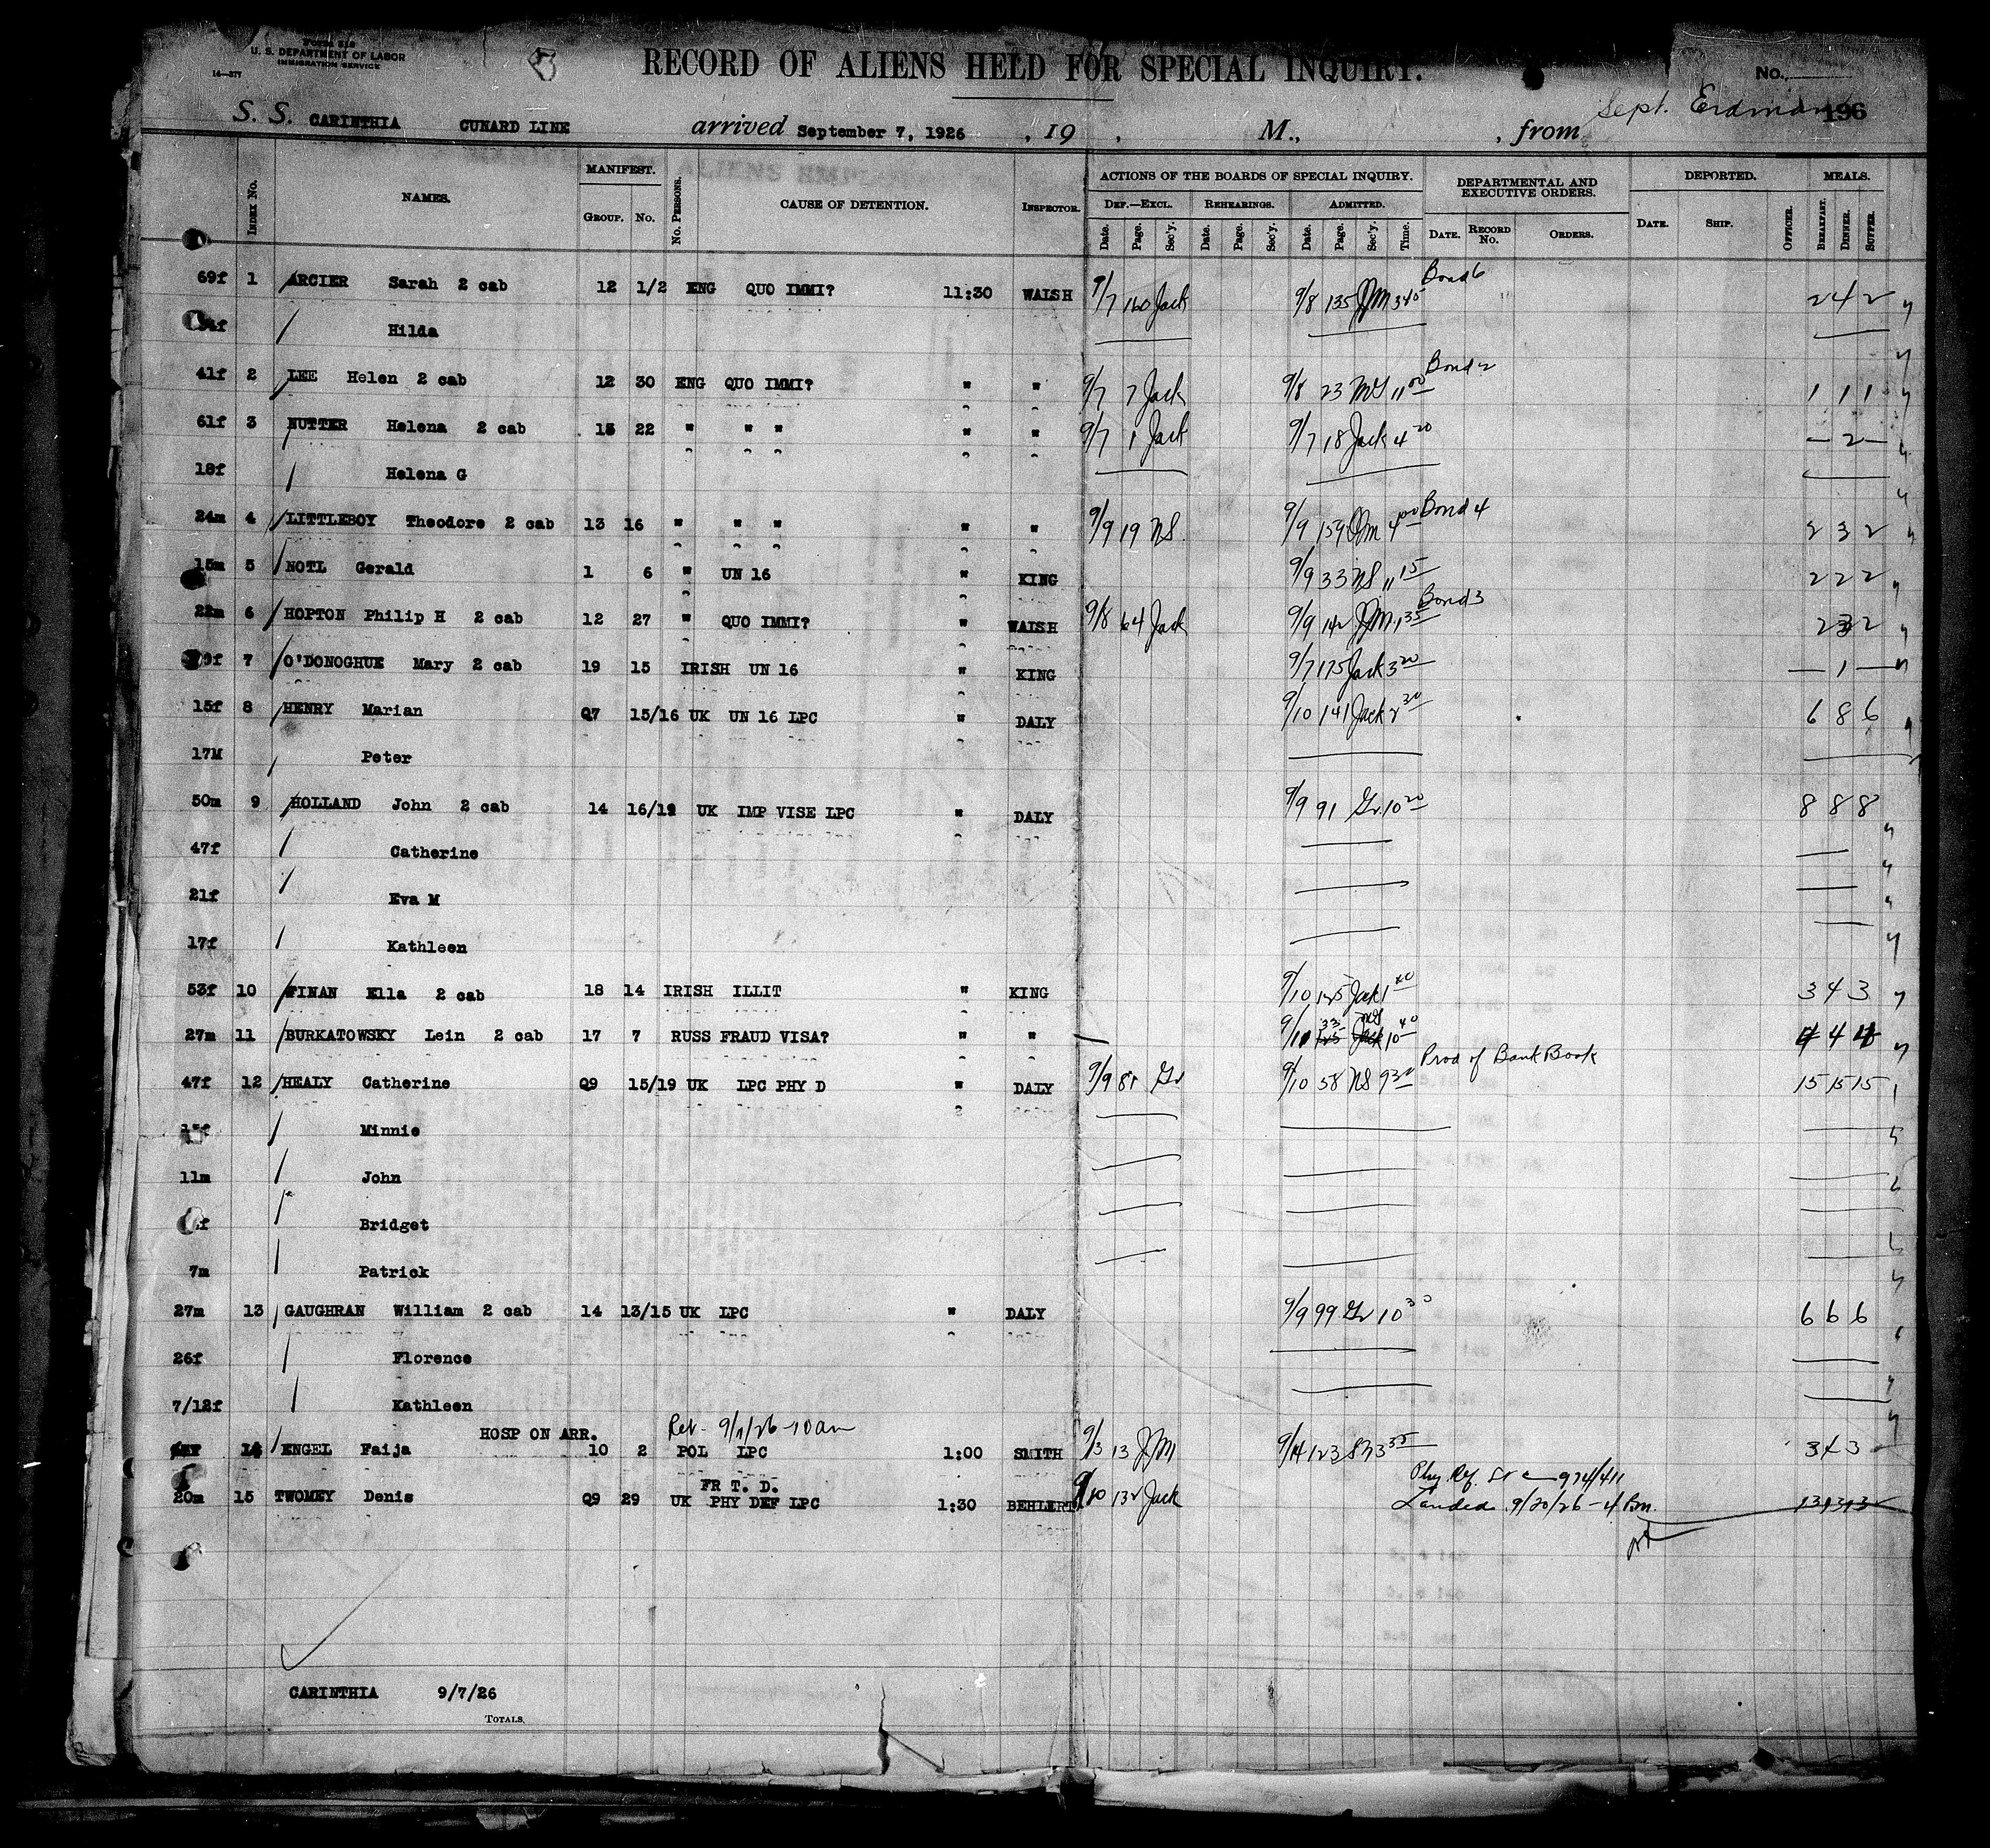 FORM 518
U. S. DEPARTMENT OF LABOR
IMMIGRATION SERVICE
14—377
RECORD OF ALIENS HELD FOR SPECIAL INQUIRY.
No.
196
S. S. CARINTHIA CUNARD LINE arrived September 7, 1926 , 19 , M., , from Sept. Erdman
INDEX No. NAMES. MANIFEST. GROUP. No. No. PERSONS. CAUSE OF DETENTION. INSPECTOR. ACTIONS OF THE BOARDS OF SPECIAL INQUIRY. DEPARTMENTAL AND EXECUTIVE ORDERS. DEPORTED. MEALS.
DEF.—EXCL. REHEARINGS. ADMITTED.
Date. Page. Sec'y. Date. Page. Sec'y. Date. Page. Sec'y. Time. DATE. RECORD No. ORDERS. DATE. SHIP. OFFICER. BREAKFAST. DINNER. SUPPER.
69f 1 ARCIER Sarah 2 cab 12 1/2 ENG QUO IMMI? 11:30 WALSH 9/7 160 Jack 9/8 135 JJM 345 Bond 6 2 4 2
Hilda
41f 2 LEE Helen 2 cab 12 30 ENG QUO IMMI? " " 9/7 7 Jack 9/8 23 MS 11 00 Bond 2 1 1 1
61f 3 NUTTER Helena 2 cab 15 22 " " " " " 9/7 1 Jack 9/7 18 Jack 4 20 — 2 —
18f Helena G
24m 4 LITTLEBOY Theodore 2 cab 13 16 " " " " " 9/9 19 NS 9/9 159 JJM 4 00 Bond 4 2 3 2
15m 5 NOTL Gerald 1 6 " UN 16 " KING 9/9 33 NS 11 15 2 2 2
22m 6 HOPTON Philip H 2 cab 12 27 " QUO IMMI? " WALSH 9/8 64 Jack 9/9 142 JJM 1 35 Bond 3 2 3 2
7 O'DONOGHUE Mary 2 cab 19 15 IRISH UN 16 " KING 9/7 175 Jack 3 20 — 1 —
15f 8 HENRY Marian Q7 15/16 UK UN 16 LPC " DALY 9/10 141 Jack 2 30 6 8 6
17M Peter
50m 9 HOLLAND John 2 cab 14 16/19 UK IMP VISE LPC " DALY 9/9 91 Gr 10 20 8 8 8
47f Catherine
21f Eva M
17f Kathleen
53f 10 FINAN Ella 2 cab 18 14 IRISH ILLIT " KING 9/10 125 Jack 1 40 3 4 3
27m 11 BURKATOWSKY Lein 2 cab 17 7 RUSS FRAUD VISA? " " 33 NS 10 40 4 4 4
47f 12 HEALY Catherine Q9 15/19 UK LPC PHY D " DALY 9/9 81 Gr 9/10 58 NS 9 30 Prod of Bank Book 15 15 15
Minnie
11m John
Bridget
7m Patrick
27m 13 GAUGHRAN William 2 cab 14 13/15 UK LPC " DALY 9/9 99 Gr 10 30 6 6 6
26f Florence
7/12f Kathleen
HOSP ON ARR. 10 am
14 ENGEL Faija 10 2 POL LPC 1:00 SMITH 13 JJM 9/14 123 3 35 3 4 3
FR T. D.
20m 15 TWOMEY Denis Q9 29 UK PHY DEF LPC 1:30 BEHLERT 9/10 132 Jack Landed 9/20/26 – 4 Pm. 13 13 13
CARINTHIA 9/7/26
TOTALS.